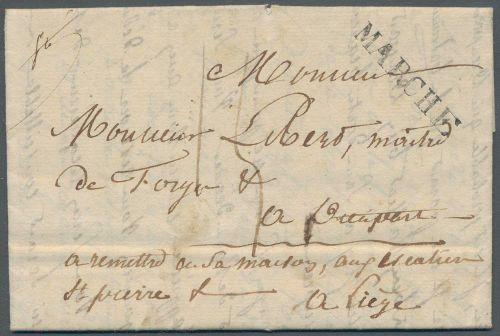 MARCHE
Monsieur
Monsieur Libert, maitre
de Forge &
a
a remettre en Sa maison, aux
St pierre &
a Liège